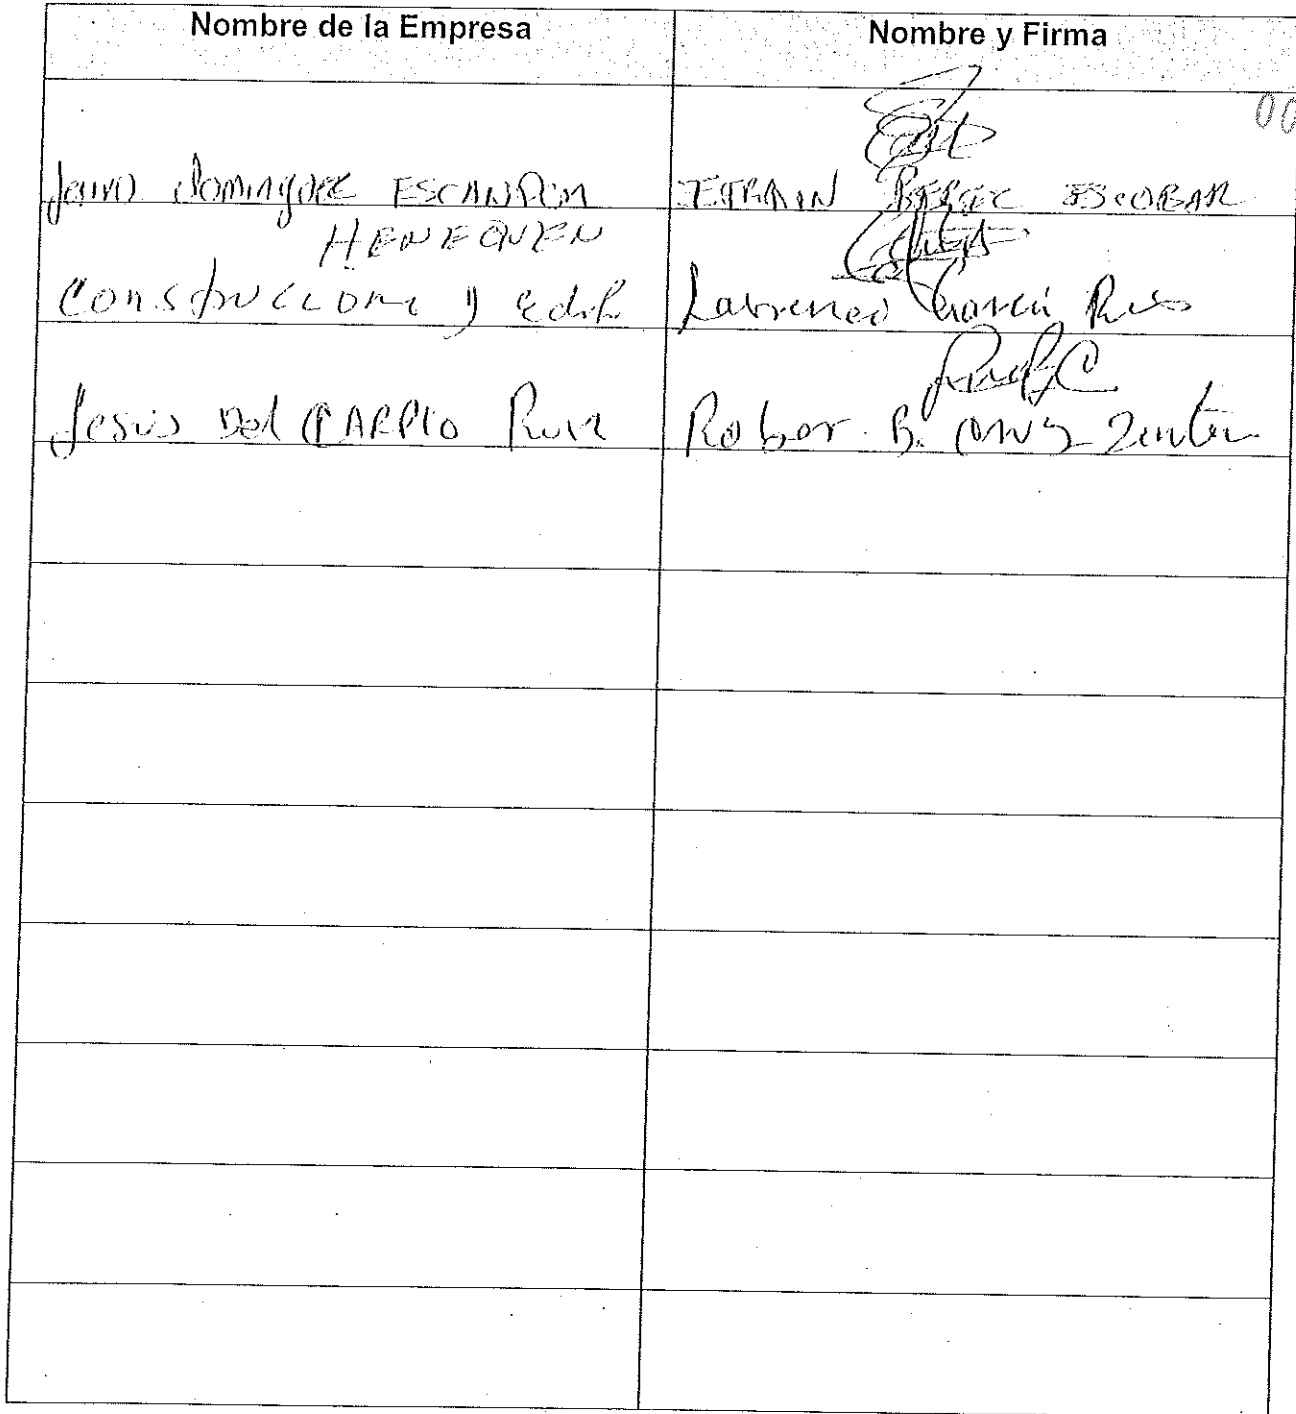 Nombre de la Empresa Nombre y Firma
00
Dominguez ESCANDON EFRAIN PEREZ ESCOBAR
HENEQUEN
Construccion y edif Lawrenco García
Jesus Del CARPIO Ruiz Rober B.